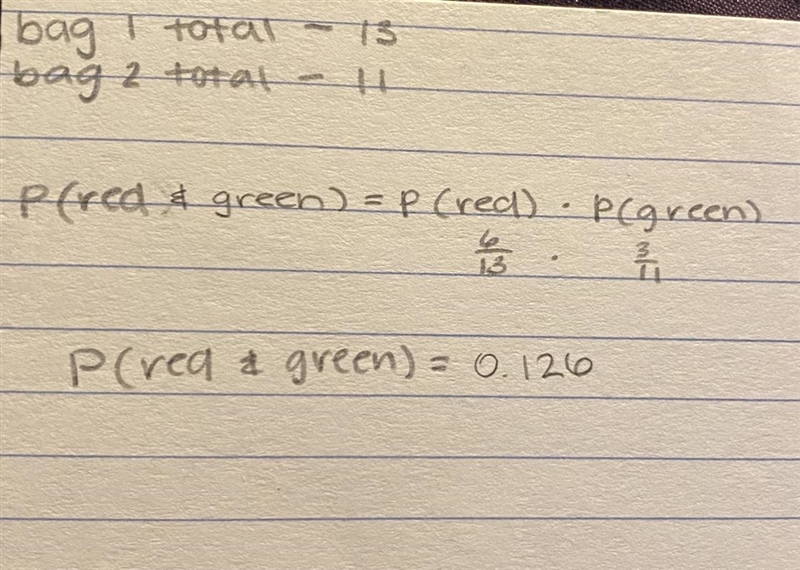 bag 1 total - 13
bag 2 total - 11
P(red & green) = P(red) · P(green)
6/13 · 3/11
P(red & green) = 0.126